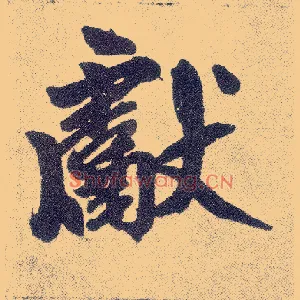 獻
Shufawang.CN